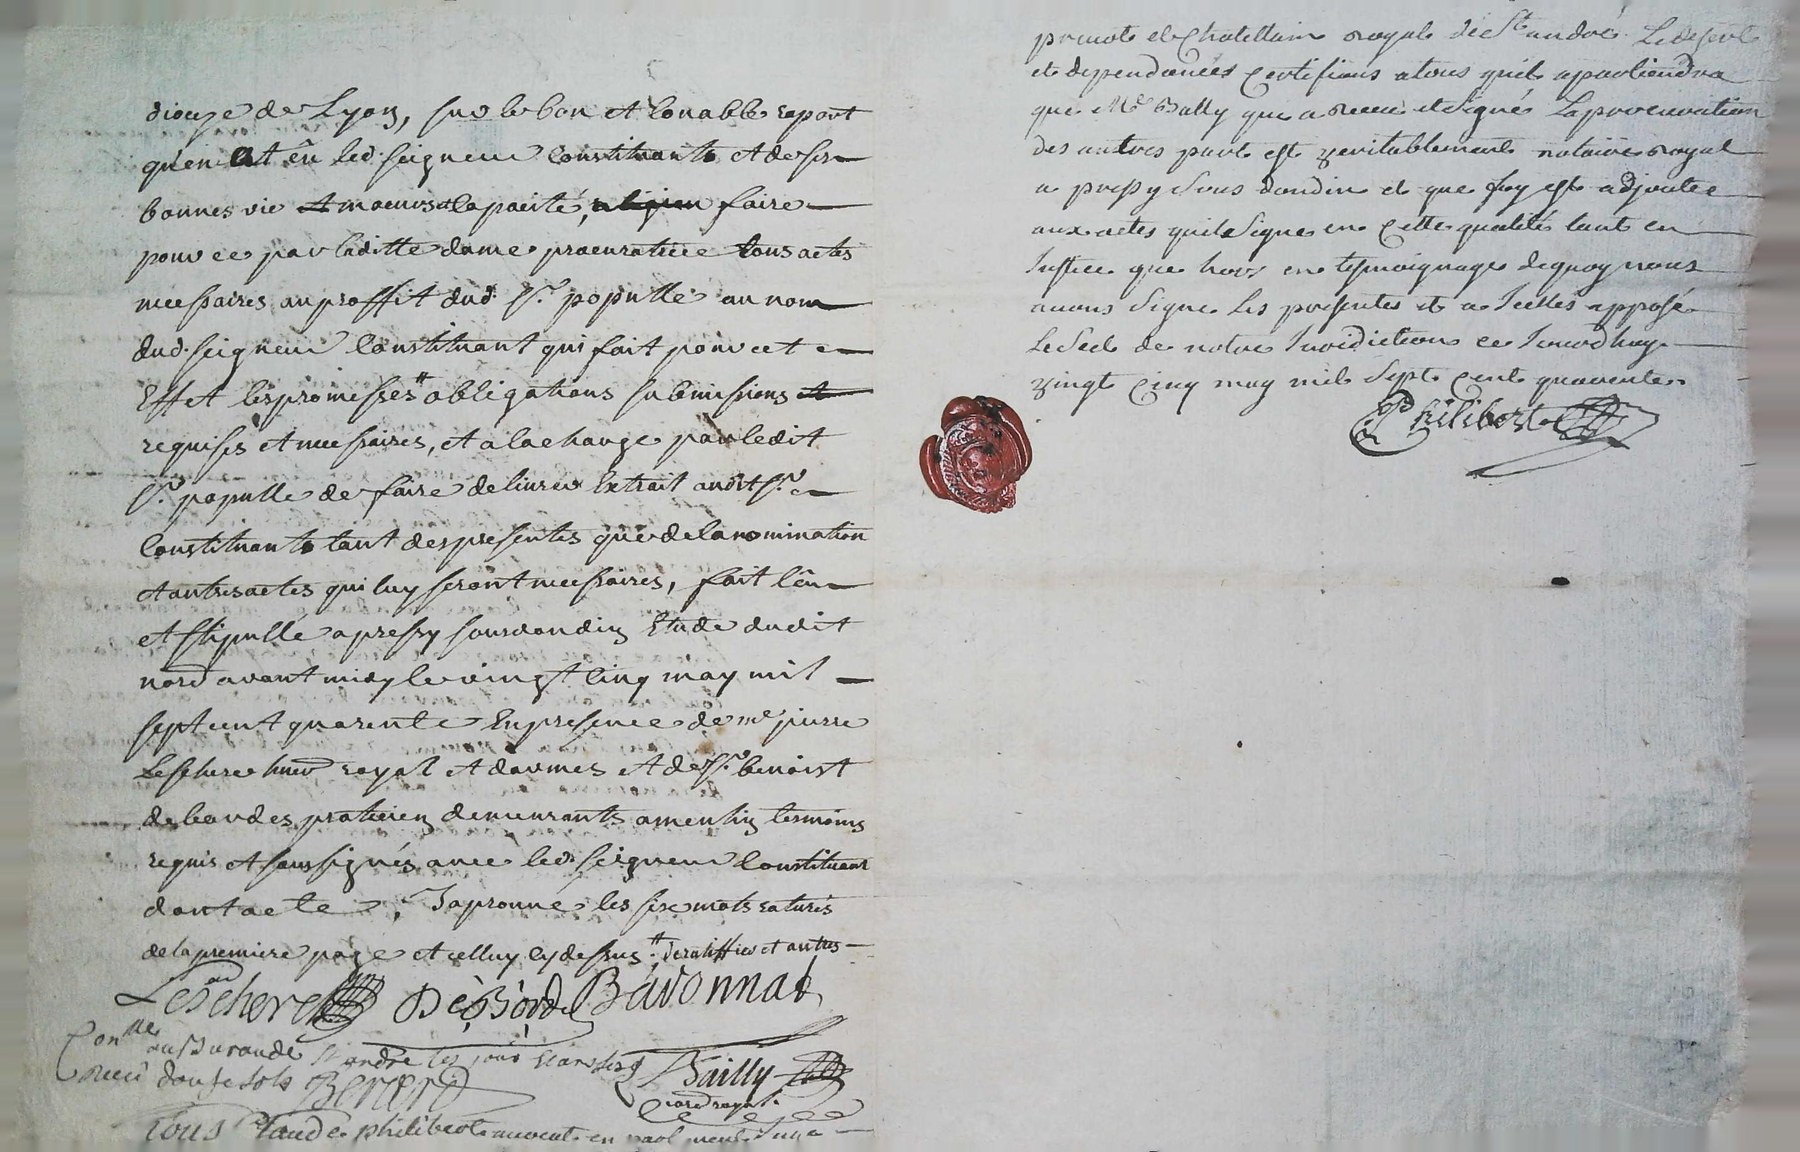 dioceze de Lyon, sur le bon et louable raport
qu'en at êu led. seigneur Constituant et de ses
bonnes vie et moeurs et Capacité, religion faire
pour ce par laditte dame procuratrice tous actes
necessaires au proffit dud. Sr. populle au nom
dud. seigneur Constituant qui fait pour cet
Effet les promesses # obligations submissions et
requises et necessaires, et a la charge par ledit
Sr. populle de faire delivrer Extrait audit Sr.
Constituant tant des presentes que de la nomination
et autres actes qui luy seront necessaires, fait leu
et stipullé a pressy sous dondin Etude dudit
nore avant midy le vingt Cinq may mil
sept cent quarente En presence de me pierre
Leschere huer royal et d'armes et de Sr. benoist
debordes praticien demeurants a tesmoins
requis et soussignés avec led. seigneur Constituant
dont acte, Japrouve les six mots raturés
de la premiere page et celluy cy dessus. # de ratiffier et autres
Leschere DéBorde Bavonnat
Conlle au St andré les jours
Receu douze sols Berterd Bailly
nore royal.
Nous Claude philibert avocat en parlement Juge
prevost et Chatellain royal de St andré Le desert
et dependances Certifions atous quil apartiendra
que Me Bailly qui a Receu et Signé La procuration
des autres part est veritablement notaire royal
a pressy Sous dondin et que foy est adjoutée
aux actes quil Signe en Cette qualité tant en
Justice que hors en tesmoignage dequoy nous
avons Signé les presentes et a Icelles apposé
Le Scel de notre Juridiction ce Jourdhuy
vingt Cinq may mil Sept Cent quarente
Philibert